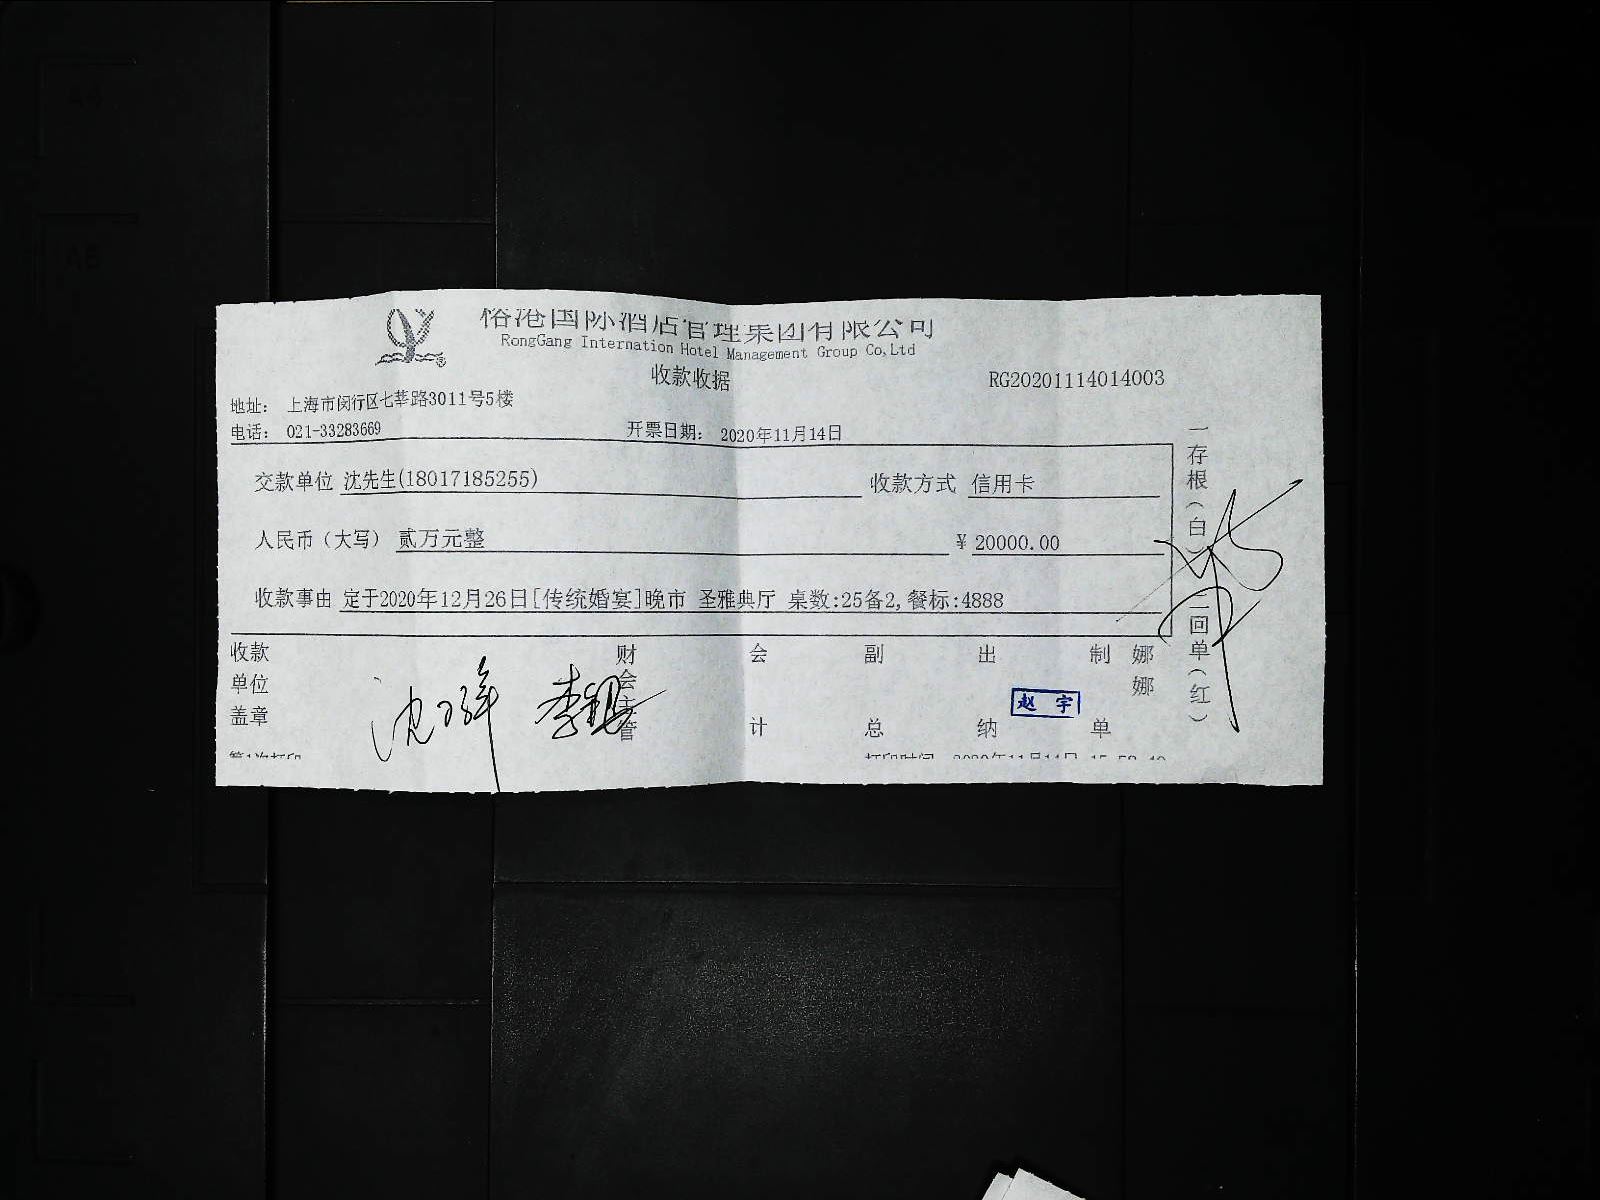 国际酒店管理集团有限公司
RongGang Internation Hotel Management Group Co,Ltd
收款收据
RG20201114014003
地址： 上海市闵行区七莘路3011号5楼
电话： 021-33283669
开票日期： 2020年11月14日
交款单位 沈先生(18017185255)
收款方式 信用卡
人民币（大写） 贰万元整
¥ 20000.00
收款事由 定于2020年12月26日[传统婚宴]晚市 圣雅典厅 桌数:25备2,餐标:4888
收款单位盖章
财会主管
会计
副总
出纳
赵宇
制单
娜娜
一存根（白）二回单（红）
第1次打印
打印时间